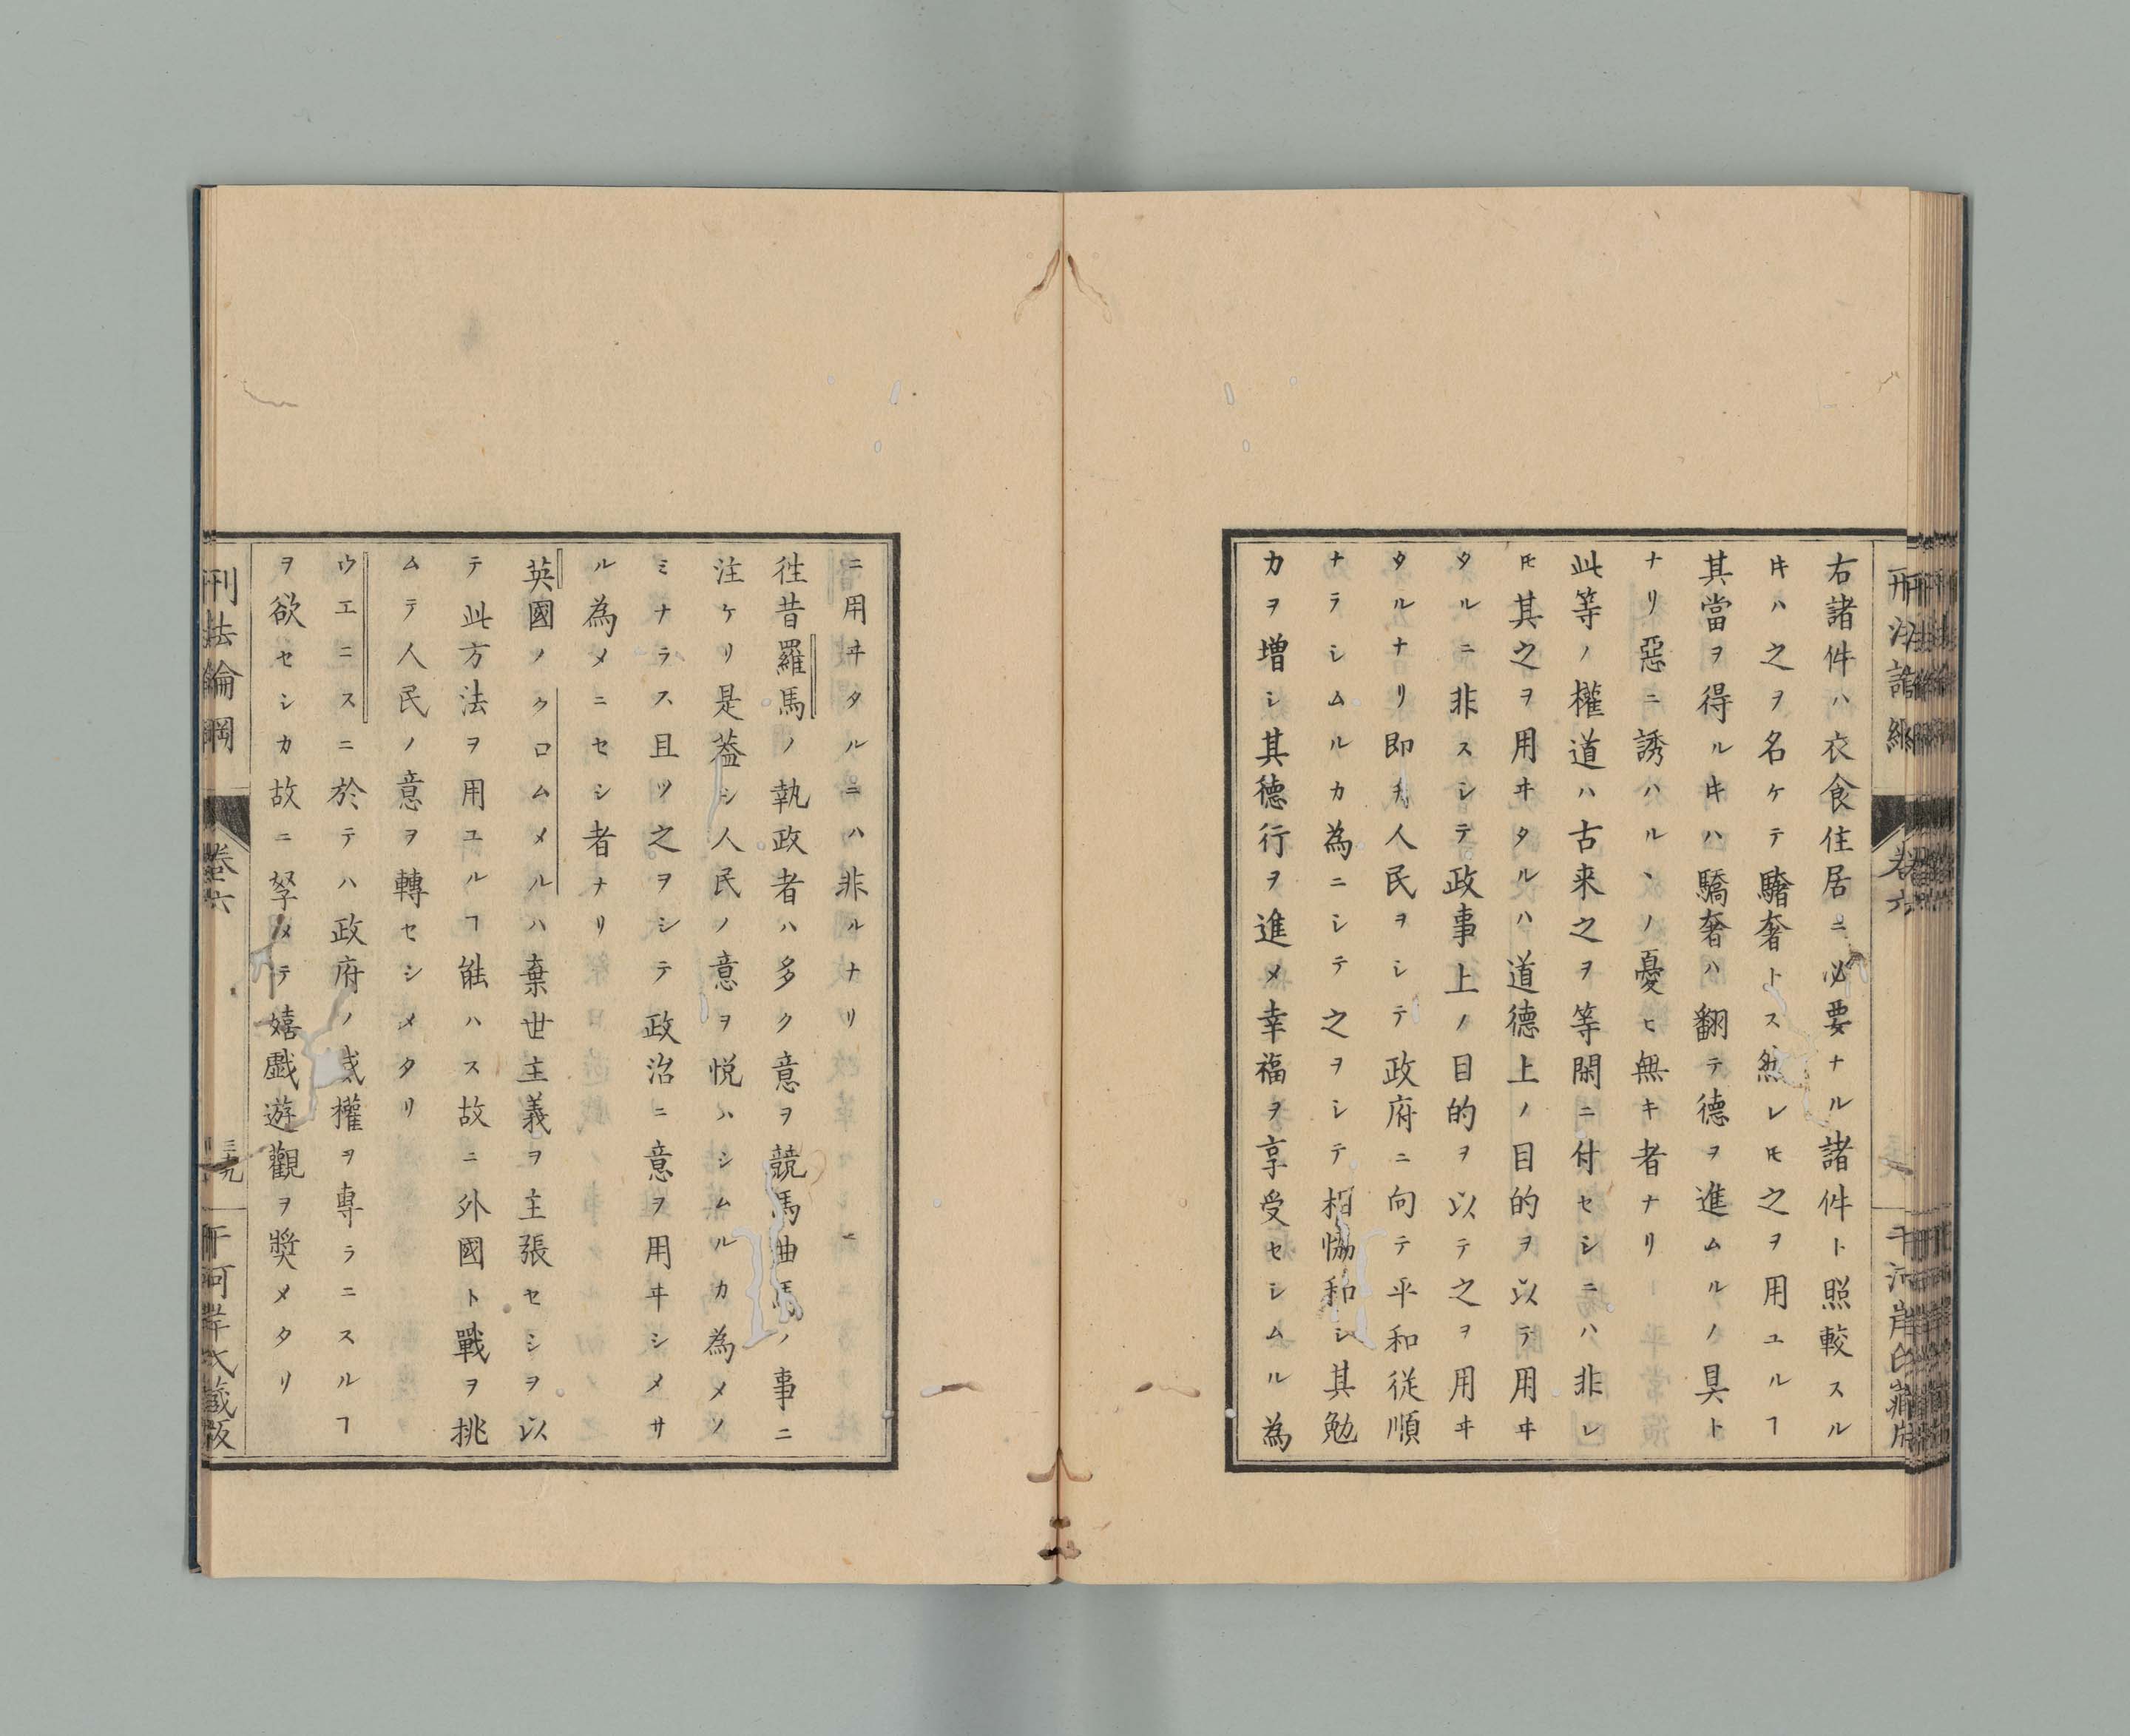 右諸件ハ衣食住居ニ必要ナル諸件ト照較スル
𪜈ハ之ヲ名ケテ驕奢トス然レ𪜈之ヲ用ユルヿ
其當ヲ得ルキハ驕奢ハ翻テ德ヲ進ムルノ具ト
ナリ惡ニ誘ハルヽノ憂ヒ無キ者ナリ
此等ノ權道ハ古来之ヲ等閑ニ付セシニハ非レ
𪜈其之ヲ用ヰタルハ道德上ノ目的ヲ以テ用ヰ
タルニ非スシテ政事上ノ目的ヲ以テ之ヲ用ヰ
タルナリ即チ人民ヲシテ政府ニ向テ平和従順
ナラシムルカ為ニシテ之ヲシテ相恊和シ其勉
力ヲ増シ其德行ヲ進メ幸福ヲ享受セシムル為
ニ用ヰタルニハ非ルナリ
徃昔羅馬ノ執政者ハ多ク意ヲ競馬曲馬ノ事ニ
注ケリ是葢シ人民ノ意ヲ悦ハシムルカ為メノ
ミナラス且ツ之ヲシテ政治ニ意ヲ用ヰシメサ
ル為メニセシ者ナリ
英國ノクロムメルハ棄世主義ヲ主張セシヲ以
テ此方法ヲ用ユルヿ能ハス故ニ外國ト戰ヲ挑
ムテ人民ノ意ヲ轉セシメタリ
ウエニスニ於テハ政府ノ威權ヲ専ラニスルヿ
ヲ欲セシカ故ニ孥メテ嬉戯遊觀ヲ奬メタリ
刑法論綱
卷六
三十九
干河岸氏藏版